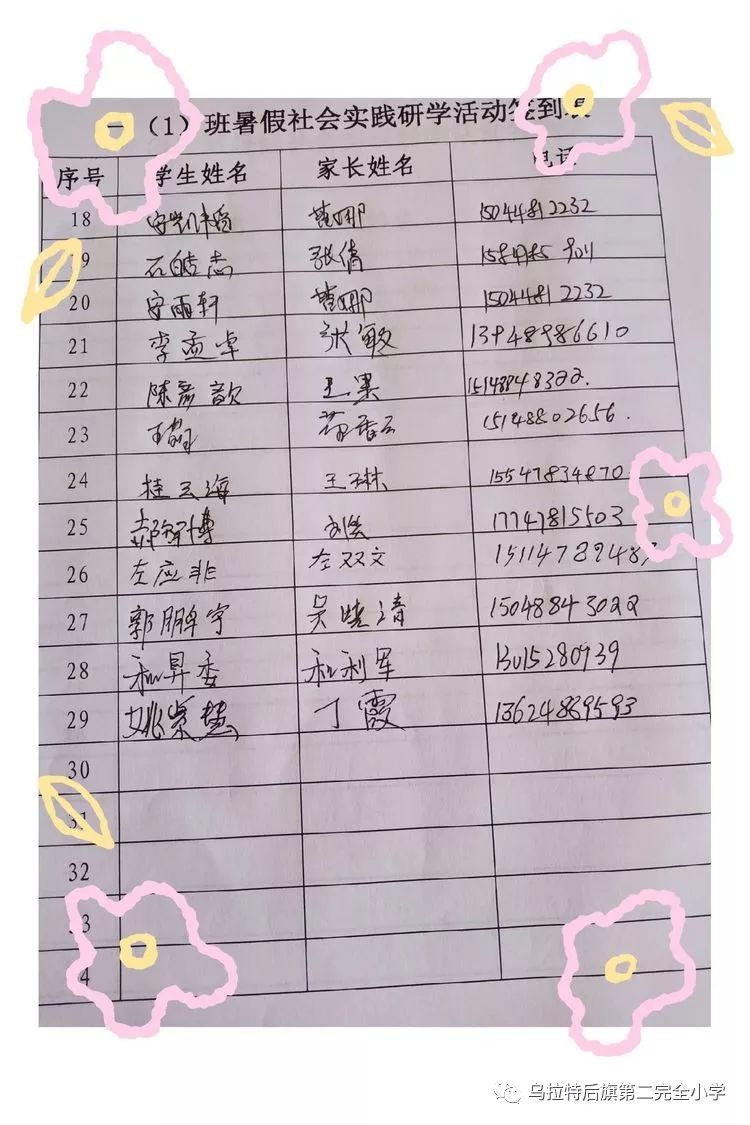 (1)班暑假社会实践研学活动签到表
序号 学生姓名 家长姓名 电话
18 15044812232
19 石皓志 张倩
20 安雨轩 15044812232
21 李孟卓 张敏 13948986610
22 陈彦歆 王果 15148848322.
23 15148802656.
24 桂云海 王琳 15547834870
25 郝智博 17747815503
26 左应非 左双文
27 郭鹏宇 吴晓清 15048843022
28 和利军 13015280939
29 姚紫慧 丁霞 13624889593
30
31
32
乌拉特后旗第二完全小学